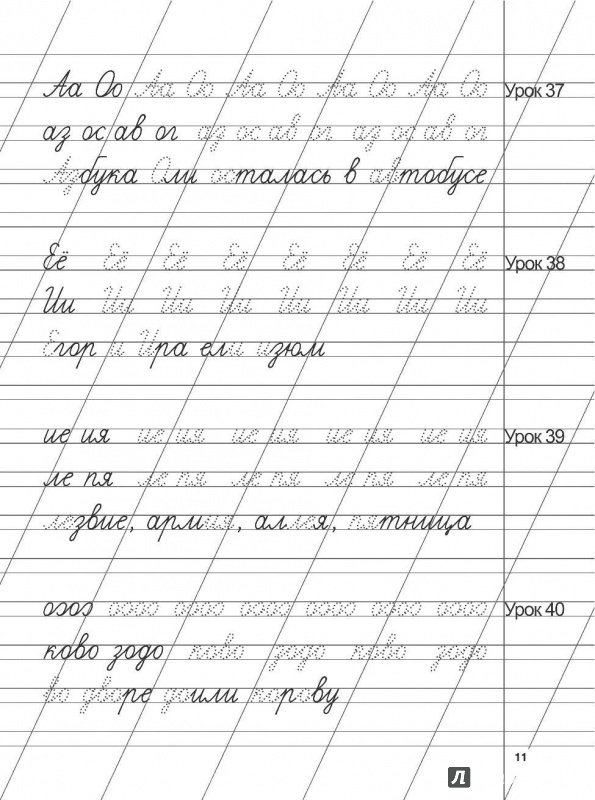 Аа Оо Аа Оо Аа Оо Аа Оо Аа Оо Урок 37
аз ос ав ог аз ос ав ог аз ос ав ог
Азбука Оли осталась в автобусе
Её Её Её Её Её Её Её Её Урок 38
Ии Ии Ии Ии Ии Ии Ии Ии
Егор и Ира ели изюм
ие ия ие ия ие ия ие ия ие ия Урок 39
ле пя ле пя ле пя ле пя ле пя
лезвие, армия, аллея, пятница
охох охохо охохо охохо охохо охохо охохо Урок 40
ково зодо ково зодо ково зодо
во дворе доили корову
11
Л